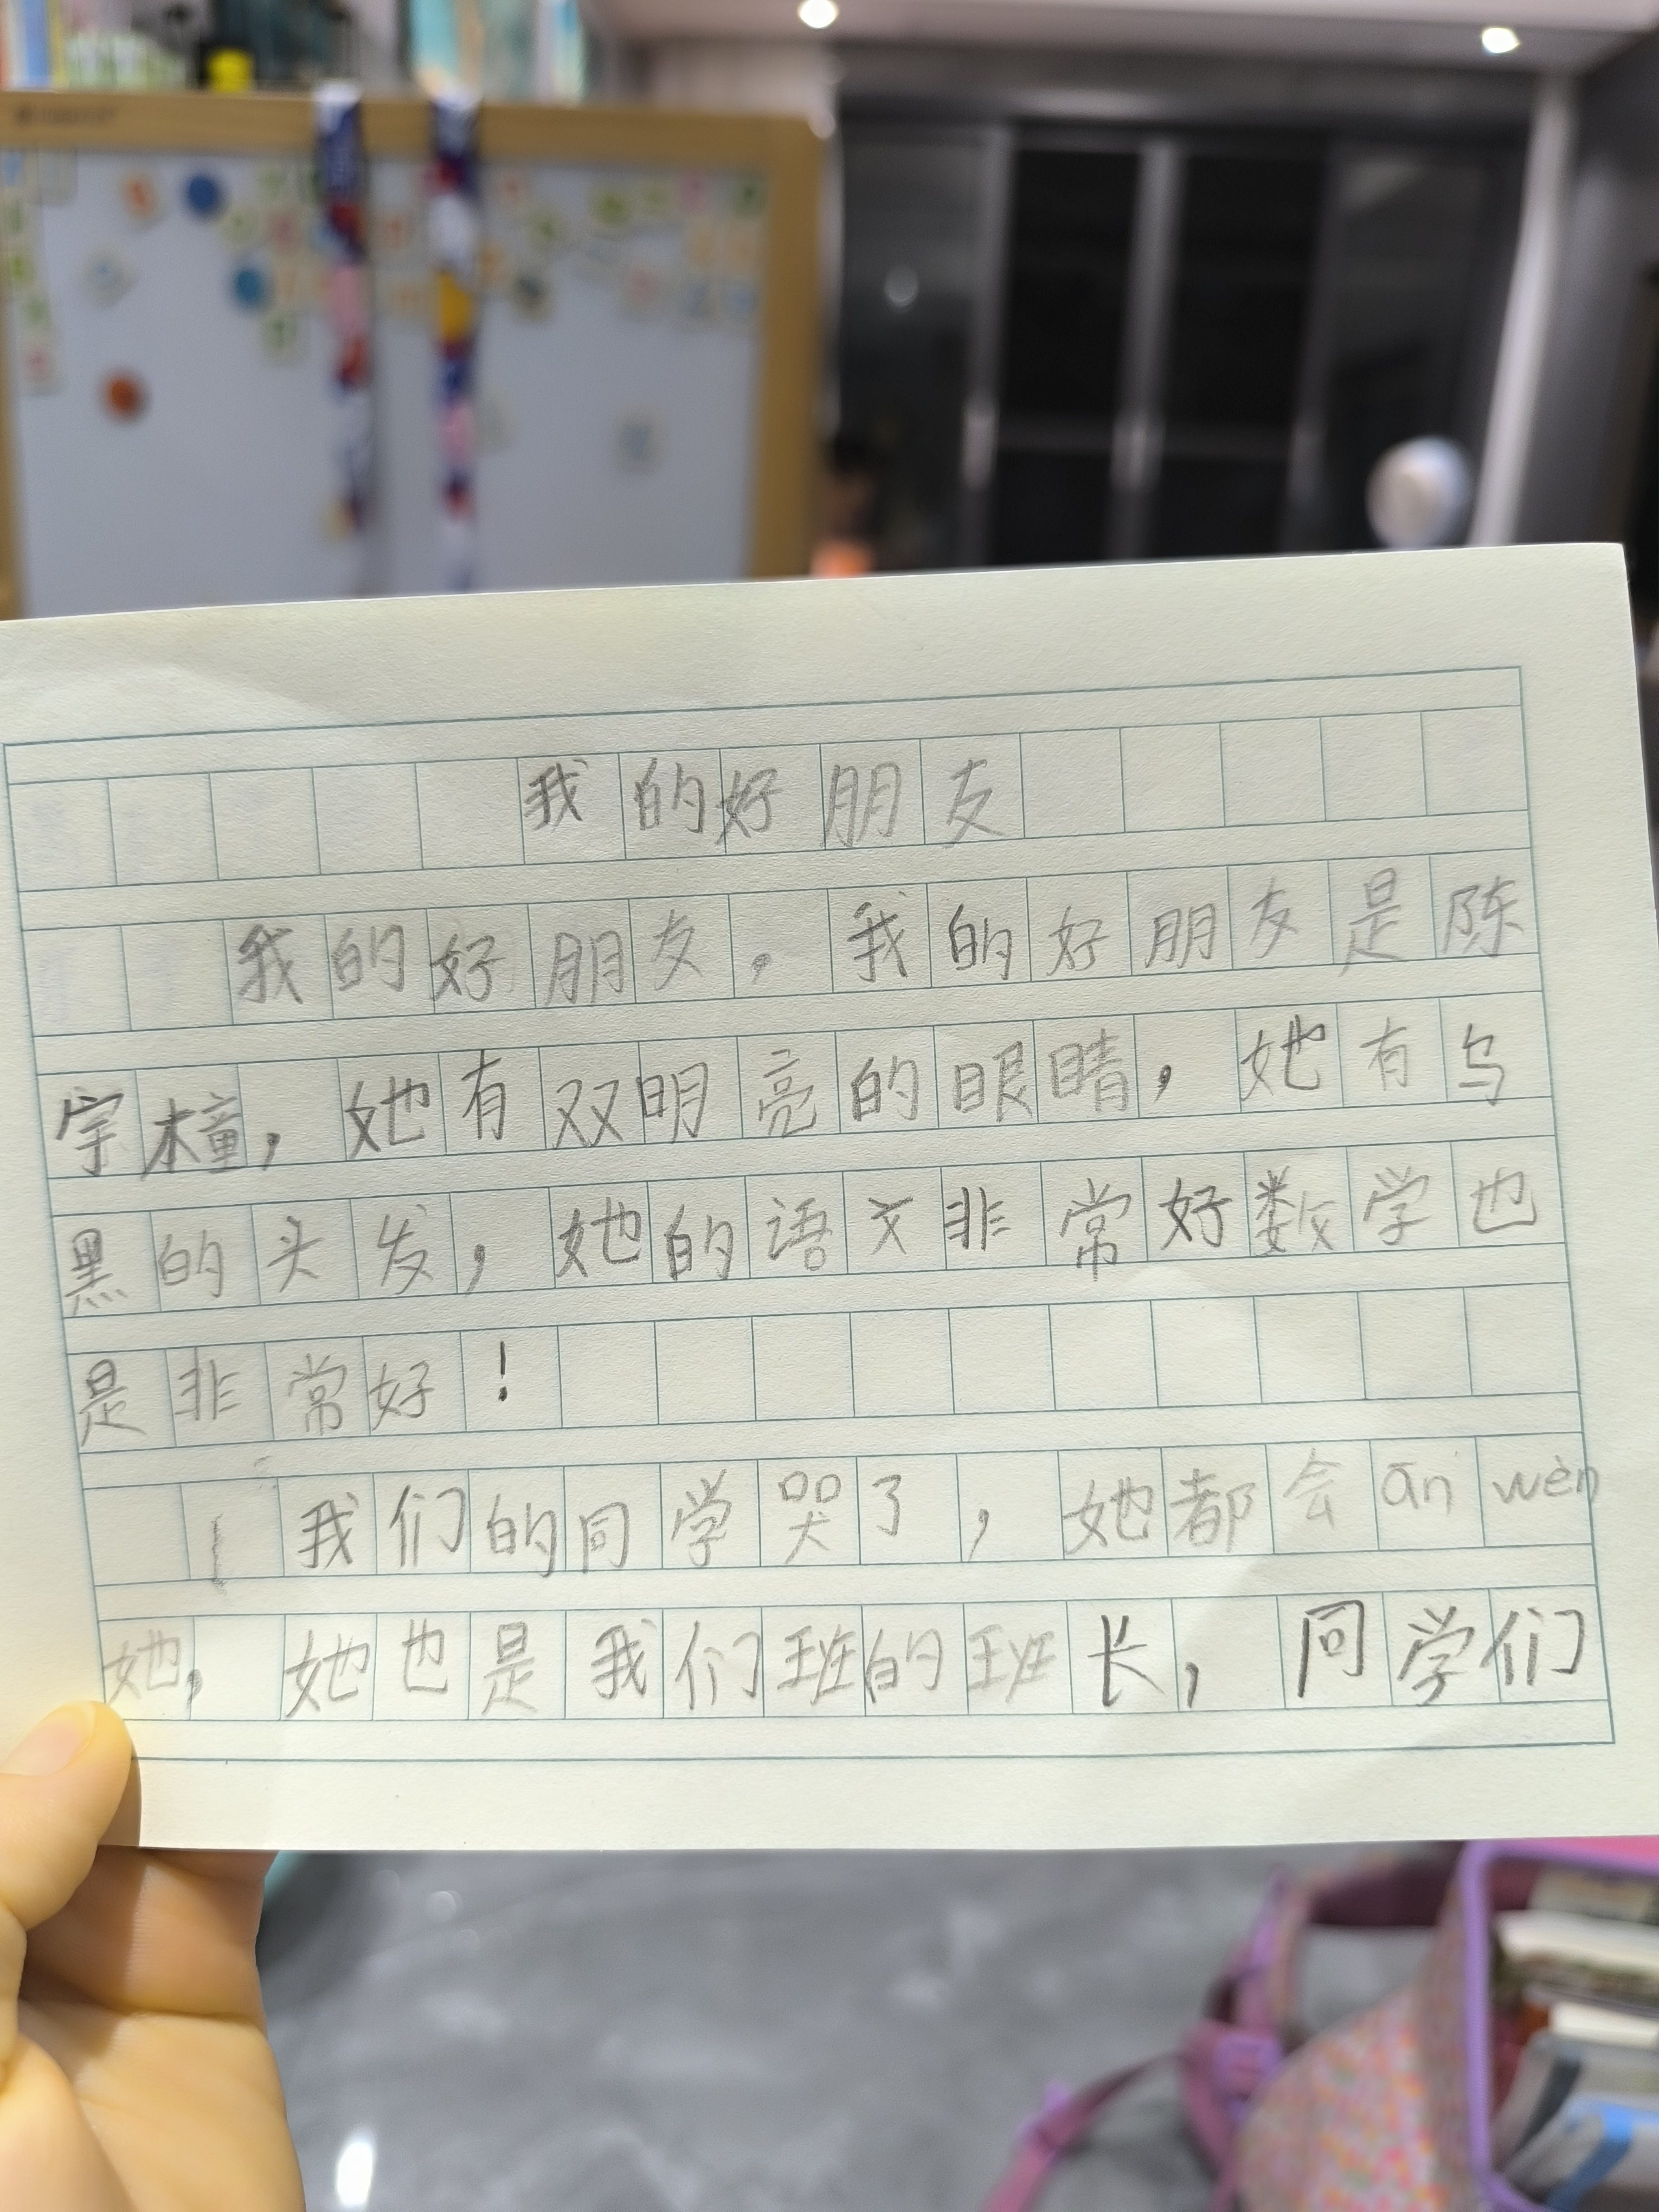 我的好朋友
我的好朋友。我的好朋友是陈
宇橦，她有双明亮的眼睛，她有乌
黑的头发，她的语文非常好数学也
是非常好！
我们的同学哭了，她都会ān wèn
她，她也是我们班的班长，同学们